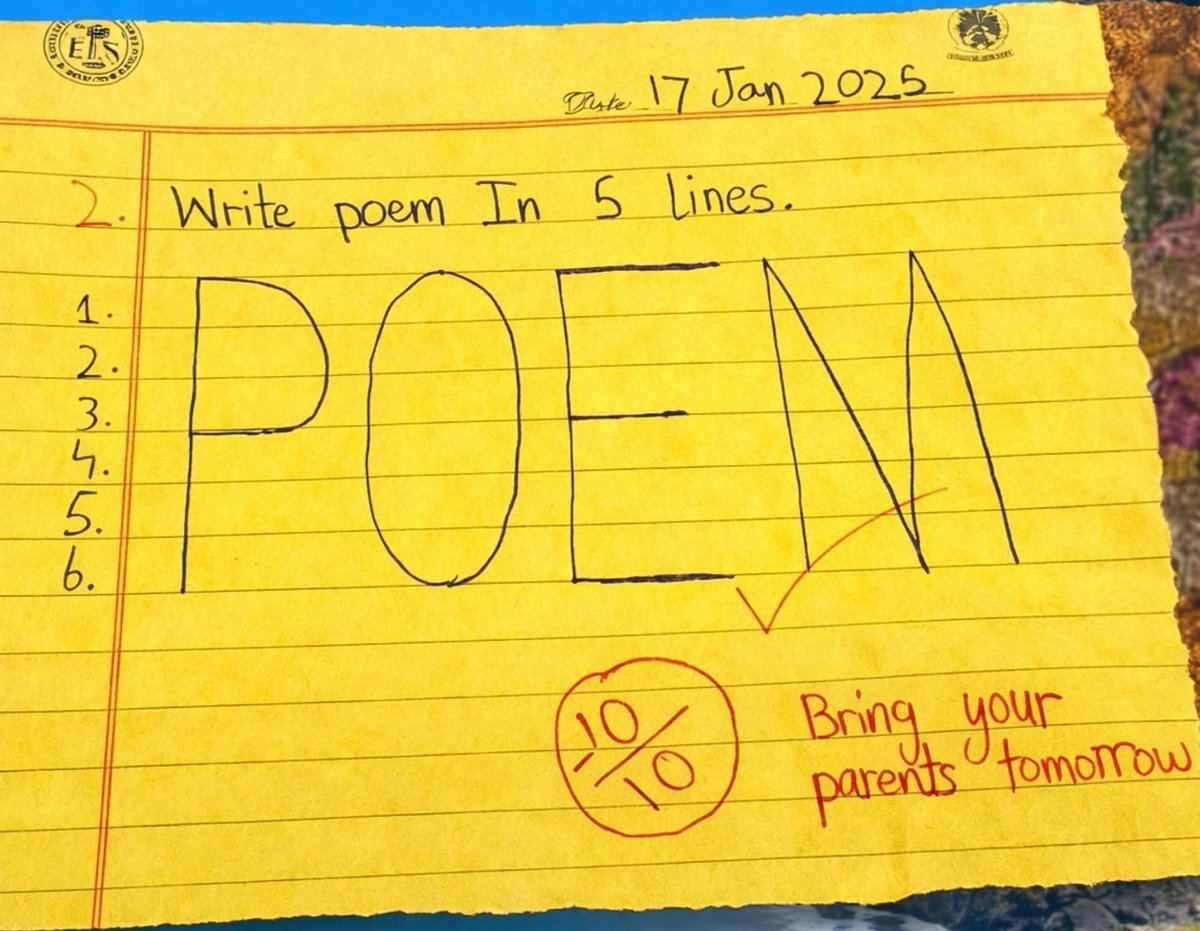 EPS
Date 17 Jan 2025
2. Write poem In 5 lines.
1.
2.
3.
4.
5.
6.
POEM
-10/10
Bring your
parents tomorrow